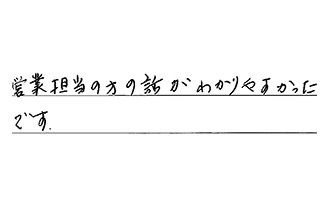 営業担当の方の話がわかりやすかった
です.